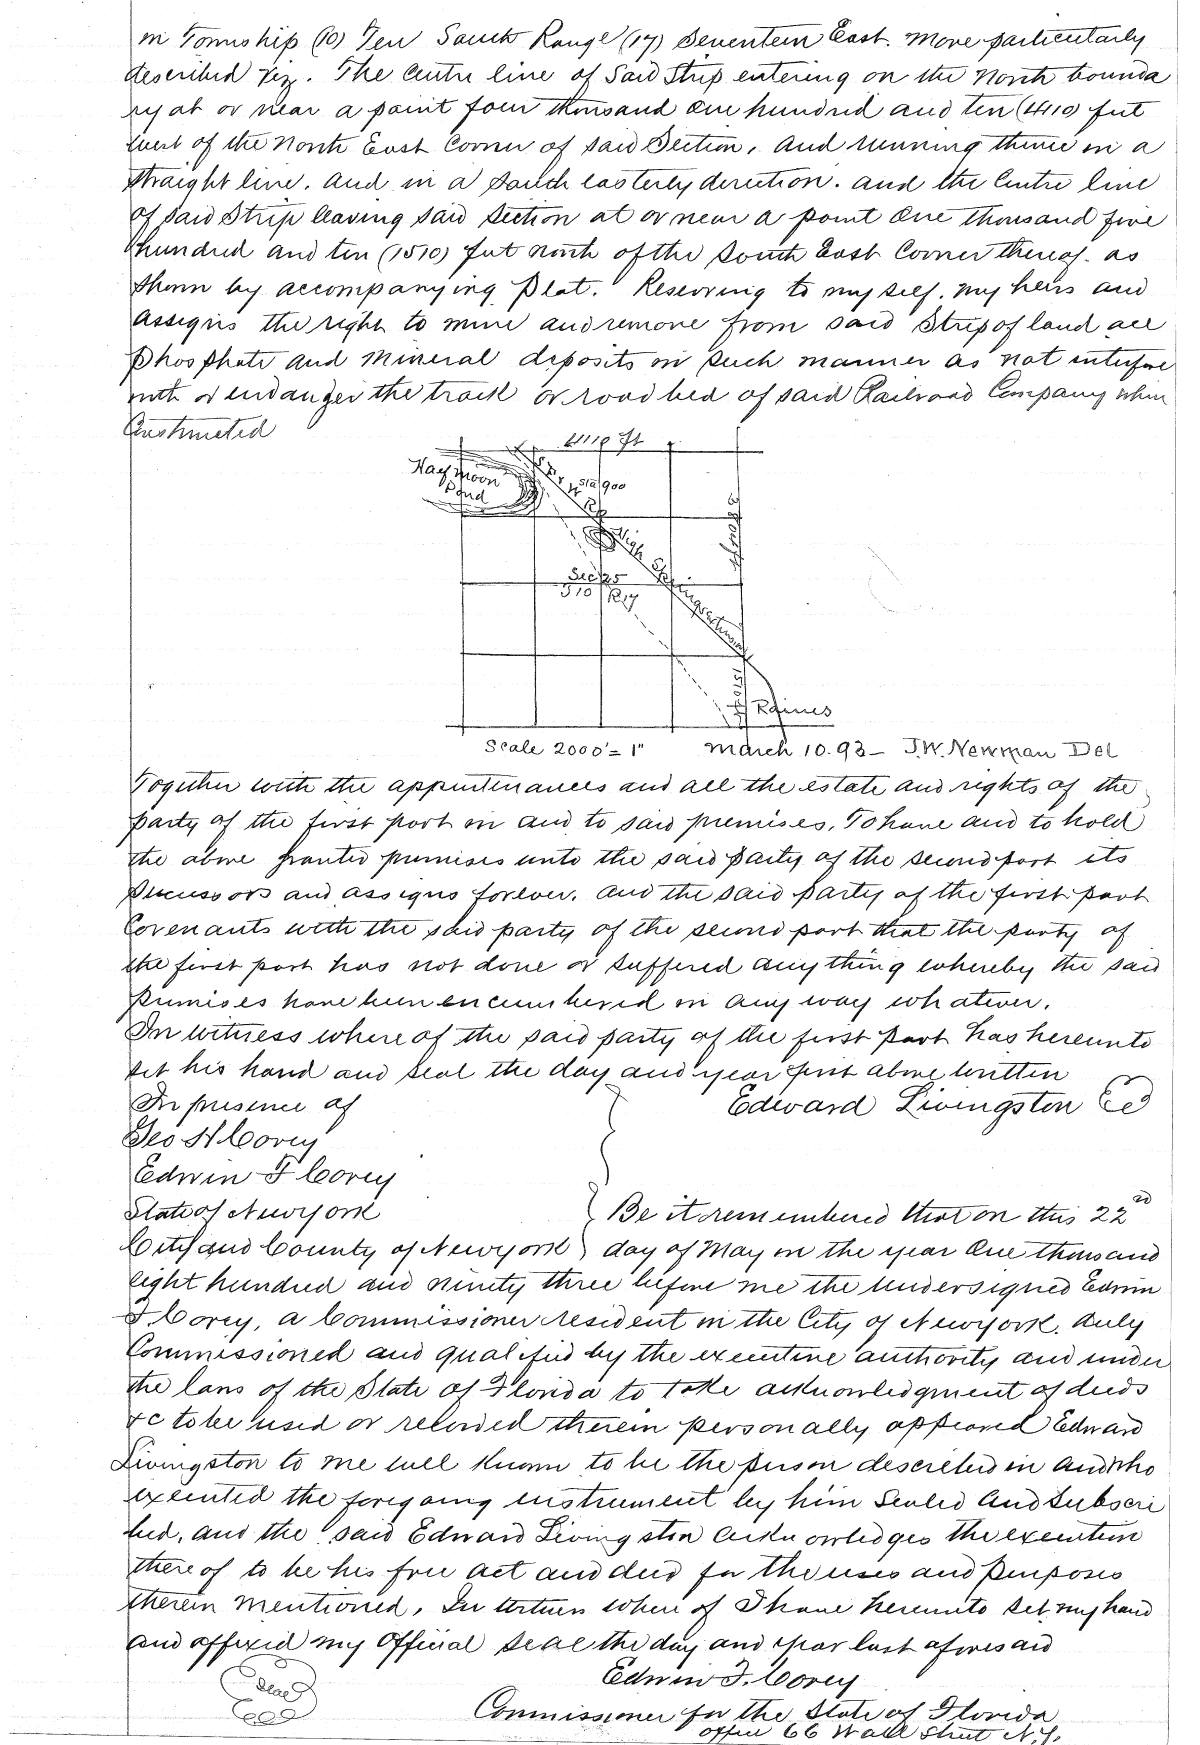 in Township (10) Ten South Range (17) Seventeen East. More particularly
described viz. The Centre line of Said Strip entering on the North bounda
ry at or near a point four thousand one hundred and ten (4110) feet
west of the North East Corner of said Section, and running thence in a
straight line. and in a South easterly direction. and the Centre line
of said Strip leaving said Section at or near a point One thousand five
hundred and ten (1510) feet north of the South East Corner thereof. as
shown by accompanying Plat. Reserving to myself. my heirs and
assigns the right to mine and remove from said Strip of land all
Phosphate and Mineral deposits in such manner as not interfere
with or endanger the track or road bed of said Railroad Company when
Constructed
4110 ft
Hay moon
Pond
S. F. & W. Ry
Sta 900
High Springs
Sec 25
T 10 R 17
Raines
Scale 2000' = 1" March 10. 93 – J.W. Newman Del
Together with the appurtenances and all the estate and rights of the
party of the first part in and to said premises, To have and to hold
the above granted premises unto the said party of the second part its
successors and assigns forever. and the said Party of the first part
Covenants with the said party of the second part that the party of
the first part has not done or suffered anything whereby the said
premises have been encumbered in any way whatever.
In witness where of the said party of the first part has hereunto
set his hand and seal the day and year first above written
In presence of Edward Livingston
Geo H Corey
Edwin F Corey
State of New York } Be it remembered that on this 22nd
City and County of New York } day of May in the year One thousand
eight hundred and ninety three before me the undersigned Edwin
F Corey, a Commissioner resident in the City of New York. duly
Commissioned and qualified by the executive authority and under
the laws of the State of Florida to take acknowledgment of deeds
&c to be used or recorded therein personally appeared Edward
Livingston to me well known to be the person described in and who
executed the foregoing instrument by him Sealed and Subscri
bed, and the said Edward Livingston acknowledges the execution
there of to be his free act and deed for the uses and purposes
therein mentioned. In where of I have hereunto set my hand
and affixed my Official seal the day and year last aforesaid
Seal
Edwin F. Corey
Commissioner for the State of Florida
office 66 Wall Street N.Y.